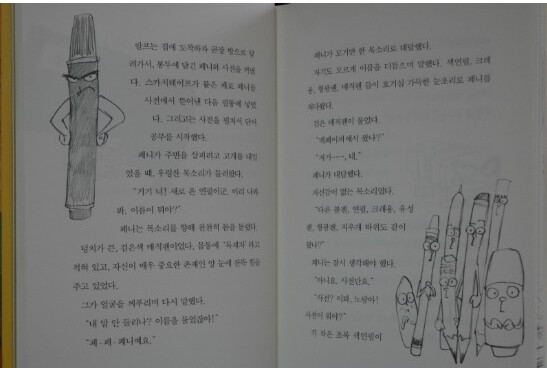 랄프는 집에 도착하자 곧장 방으로 달
려가서, 봉투에 담긴 페니와 사전을 꺼냈
다. 스카치테이프가 붙은 채로 페니를
사전에서 뜯어낸 다음 필통에 넣었
다. 그리고는 사전을 펼쳐서 단어
공부를 시작했다.
페니가 주변을 살피려고 고개를 내밀
었을 때, 우렁찬 목소리가 들려왔다.
"거기 너! 새로 온 연필이군, 이리 나와
봐. 이름이 뭐야?"
페니는 목소리를 향해 천천히 몸을 돌렸다.
덩치가 큰, 검은색 매직펜이었다. 몸통에 '독재자'라고
적혀 있고, 자신이 매우 중요한 존재인 양 눈에 잔뜩 힘을
주고 있었다.
그가 얼굴을 찌푸리며 다시 말했다.
"내 말 안 들리나? 이름을 물었잖아!"
"페-페-페니예요."
페니가 모기만 한 목소리로 대답했다.
자기도 모르게 이름을 더듬으며 말했다. 색연필, 크레
용, 형광펜, 매직펜 들이 호기심 가득한 눈초리로 페니를
쳐다봤다.
검은 매직펜이 물었다.
"맥페이퍼에서 왔나?"
"저가……, 네."
페니가 대답했다.
자신감이 없는 목소리였다.
"다른 볼펜, 연필, 크레용, 유성
펜, 형광펜, 지우개 따위도 같이
왔나?"
페니는 잠시 생각해야 했다.
"아니요, 사전만요."
"사전? 이봐, 노랑이!
사전이 뭐야?"
작은 초록 색연필이